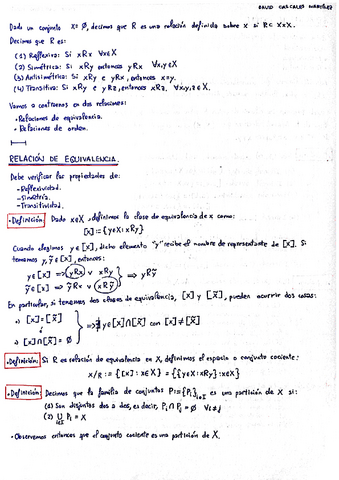 DAVID CASCALES MARTÍNEZ
Dado un conjunto X≠∅, decimos que R es una relación definida sobre X si R⊂X×X.
Decimos que R es:
(1) Reflexiva: Si xRx ∀x∈X
(2) Simétrica: Si xRy entonces yRx ∀x,y∈X
(3) Antisimétrica: Si xRy e yRx, entonces x=y.
(4) Transitiva: Si xRy e yRz, entonces xRz, ∀x,y,z∈X.
Vamos a centrarnos en dos relaciones:
• Relaciones de equivalencia.
• Relaciones de orden.
RELACIÓN DE EQUIVALENCIA.
Debe verificar las propiedades de:
- Reflexividad.
- Simetría.
- Transitividad.
• Definición: Dado x∈X, definimos la clase de equivalencia de x como:
[x]:={y∈X: xRy}
Cuando elegimos y∈[x], dicho elemento "y" recibe el nombre de representante de [x]. Si
tenemos y, ỹ∈[x], entonces:
y∈[x] ⇒ yRx ∨ xRy
ỹ∈[x] ⇒ ỹRx ∨ xRỹ ⇒ yRỹ
En particular, si tenemos dos clases de equivalencia, [x] y [x̃], pueden ocurrir dos cosas:
•) [x]=[x̃]
ó
•) [x]∩[x̃]=∅ ⇒ ∄ y∈[x]∩[x̃] con [x]≠[x̃]
• Definición: Si R es relación de equivalencia en X, definimos el espacio o conjunto cociente:
X/R := {[x]: x∈X} = {{y∈X: xRy}: x∈X}
• Definición: Decimos que la familia de conjuntos P:={Pi}i∈I es una partición de X si:
(1) Son disjuntos dos a dos, es decir, Pi∩Pj=∅ ∀i≠j
(2) ⋃i∈I Pi = X
• Observemos entonces que el conjunto cociente es una partición de X.